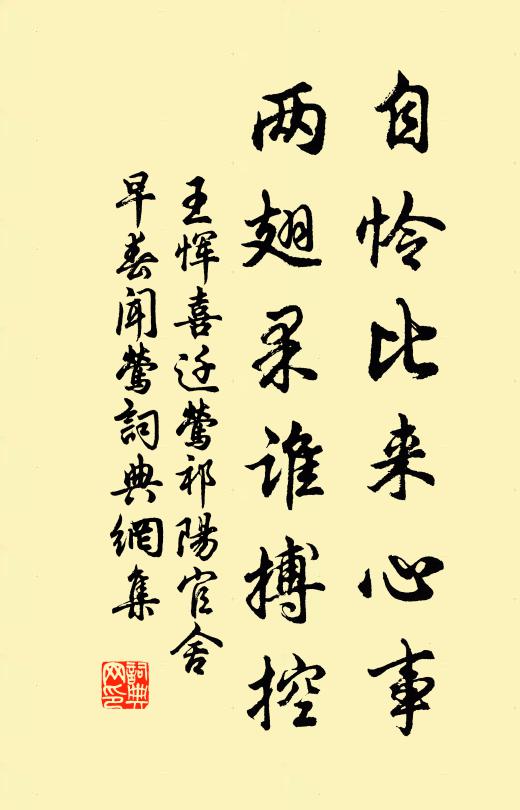 自怜比来心事
两翅果谁搏控
王恽喜迁莺祁陽官舍
早春闻莺詞典網集
詞典网印